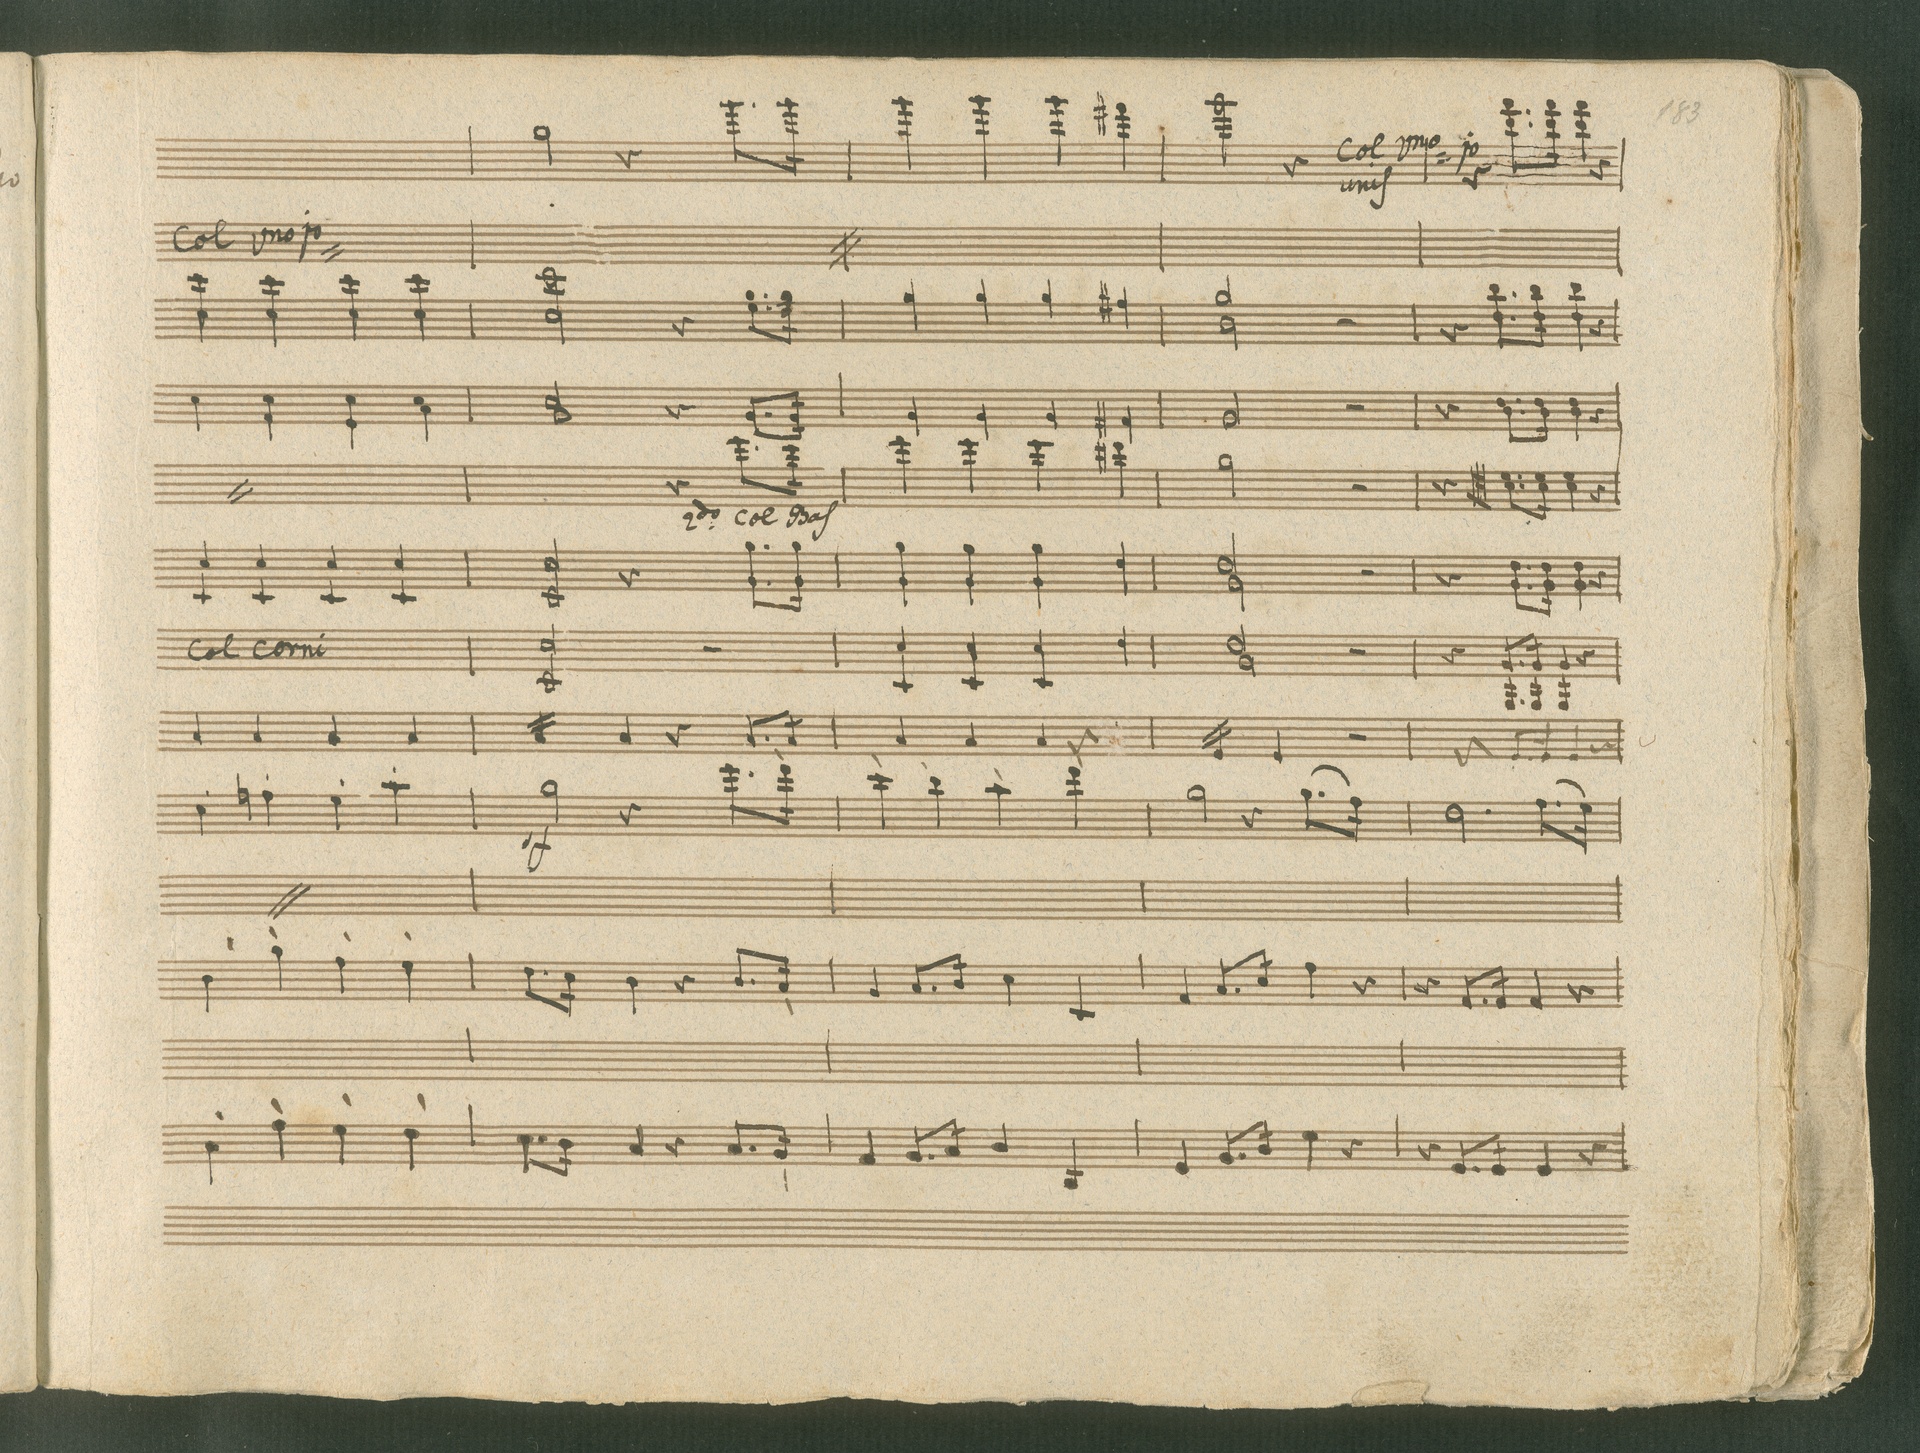 183
Col vnio jo
unis
Col vno jo
2do. Col Bas
Col Corni
sf